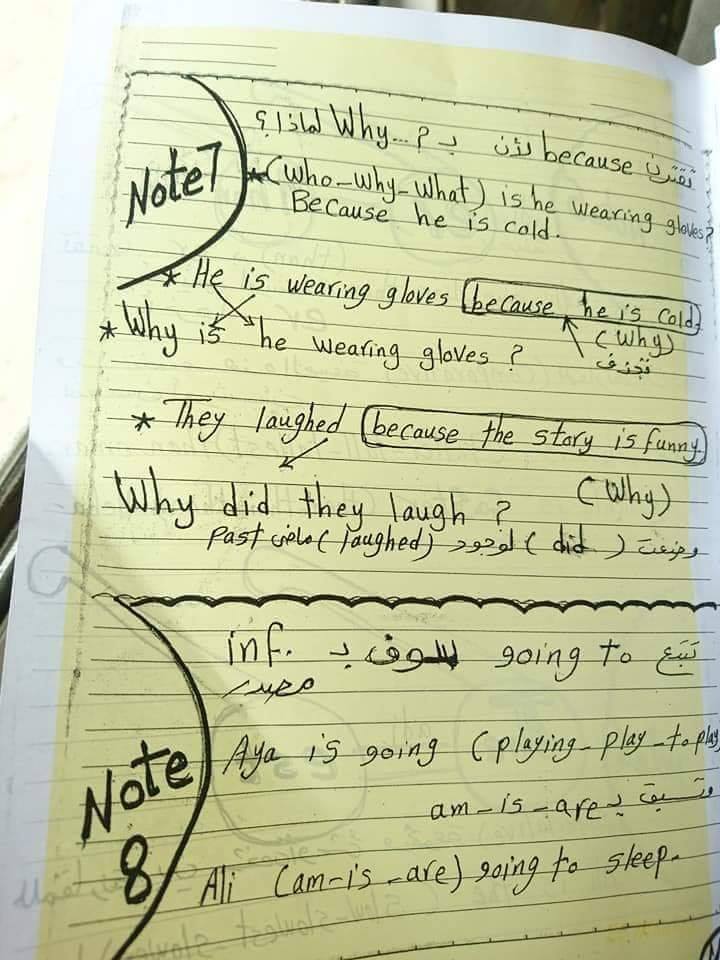 Note 7
تقترن because لأن بـ م...Why لماذا؟
* (who-why-what) is he wearing gloves?
Because he is cold.
* He is wearing gloves because he is cold.
(Why)
تحذف
* Why is he wearing gloves?
* They laughed because the story is funny.
(Why)
Why did they laugh?
وضعت (did) لوجود (laughed) ماضى past
Note 8
تتبع going to سوف بـ inf.
مصدر
Aya is going (playing-play-to play)
وتسبق بـ am-is-are
Ali (am-is-are) going to sleep.